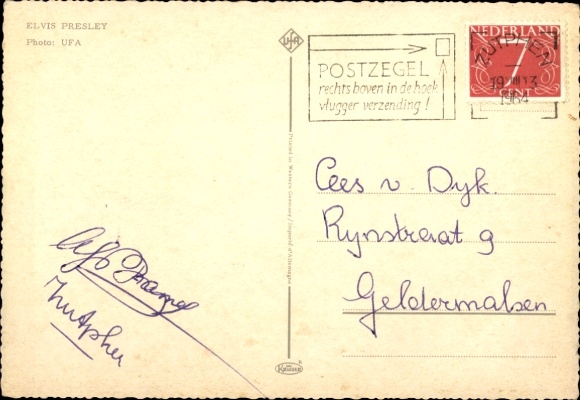 ELVIS PRESLEY
Photo: UFA
UFA
POSTZEGEL
rechts boven in de hoek
vlugger verzending!
NEDERLAND
7
CENT
ZUTPHEN
1964
Cees v. Dyk.
Rynstraat 9
Geldermalsen
Zutphen
Printed in Western Germany / Imprimé d'Allemagne
KRÜGER